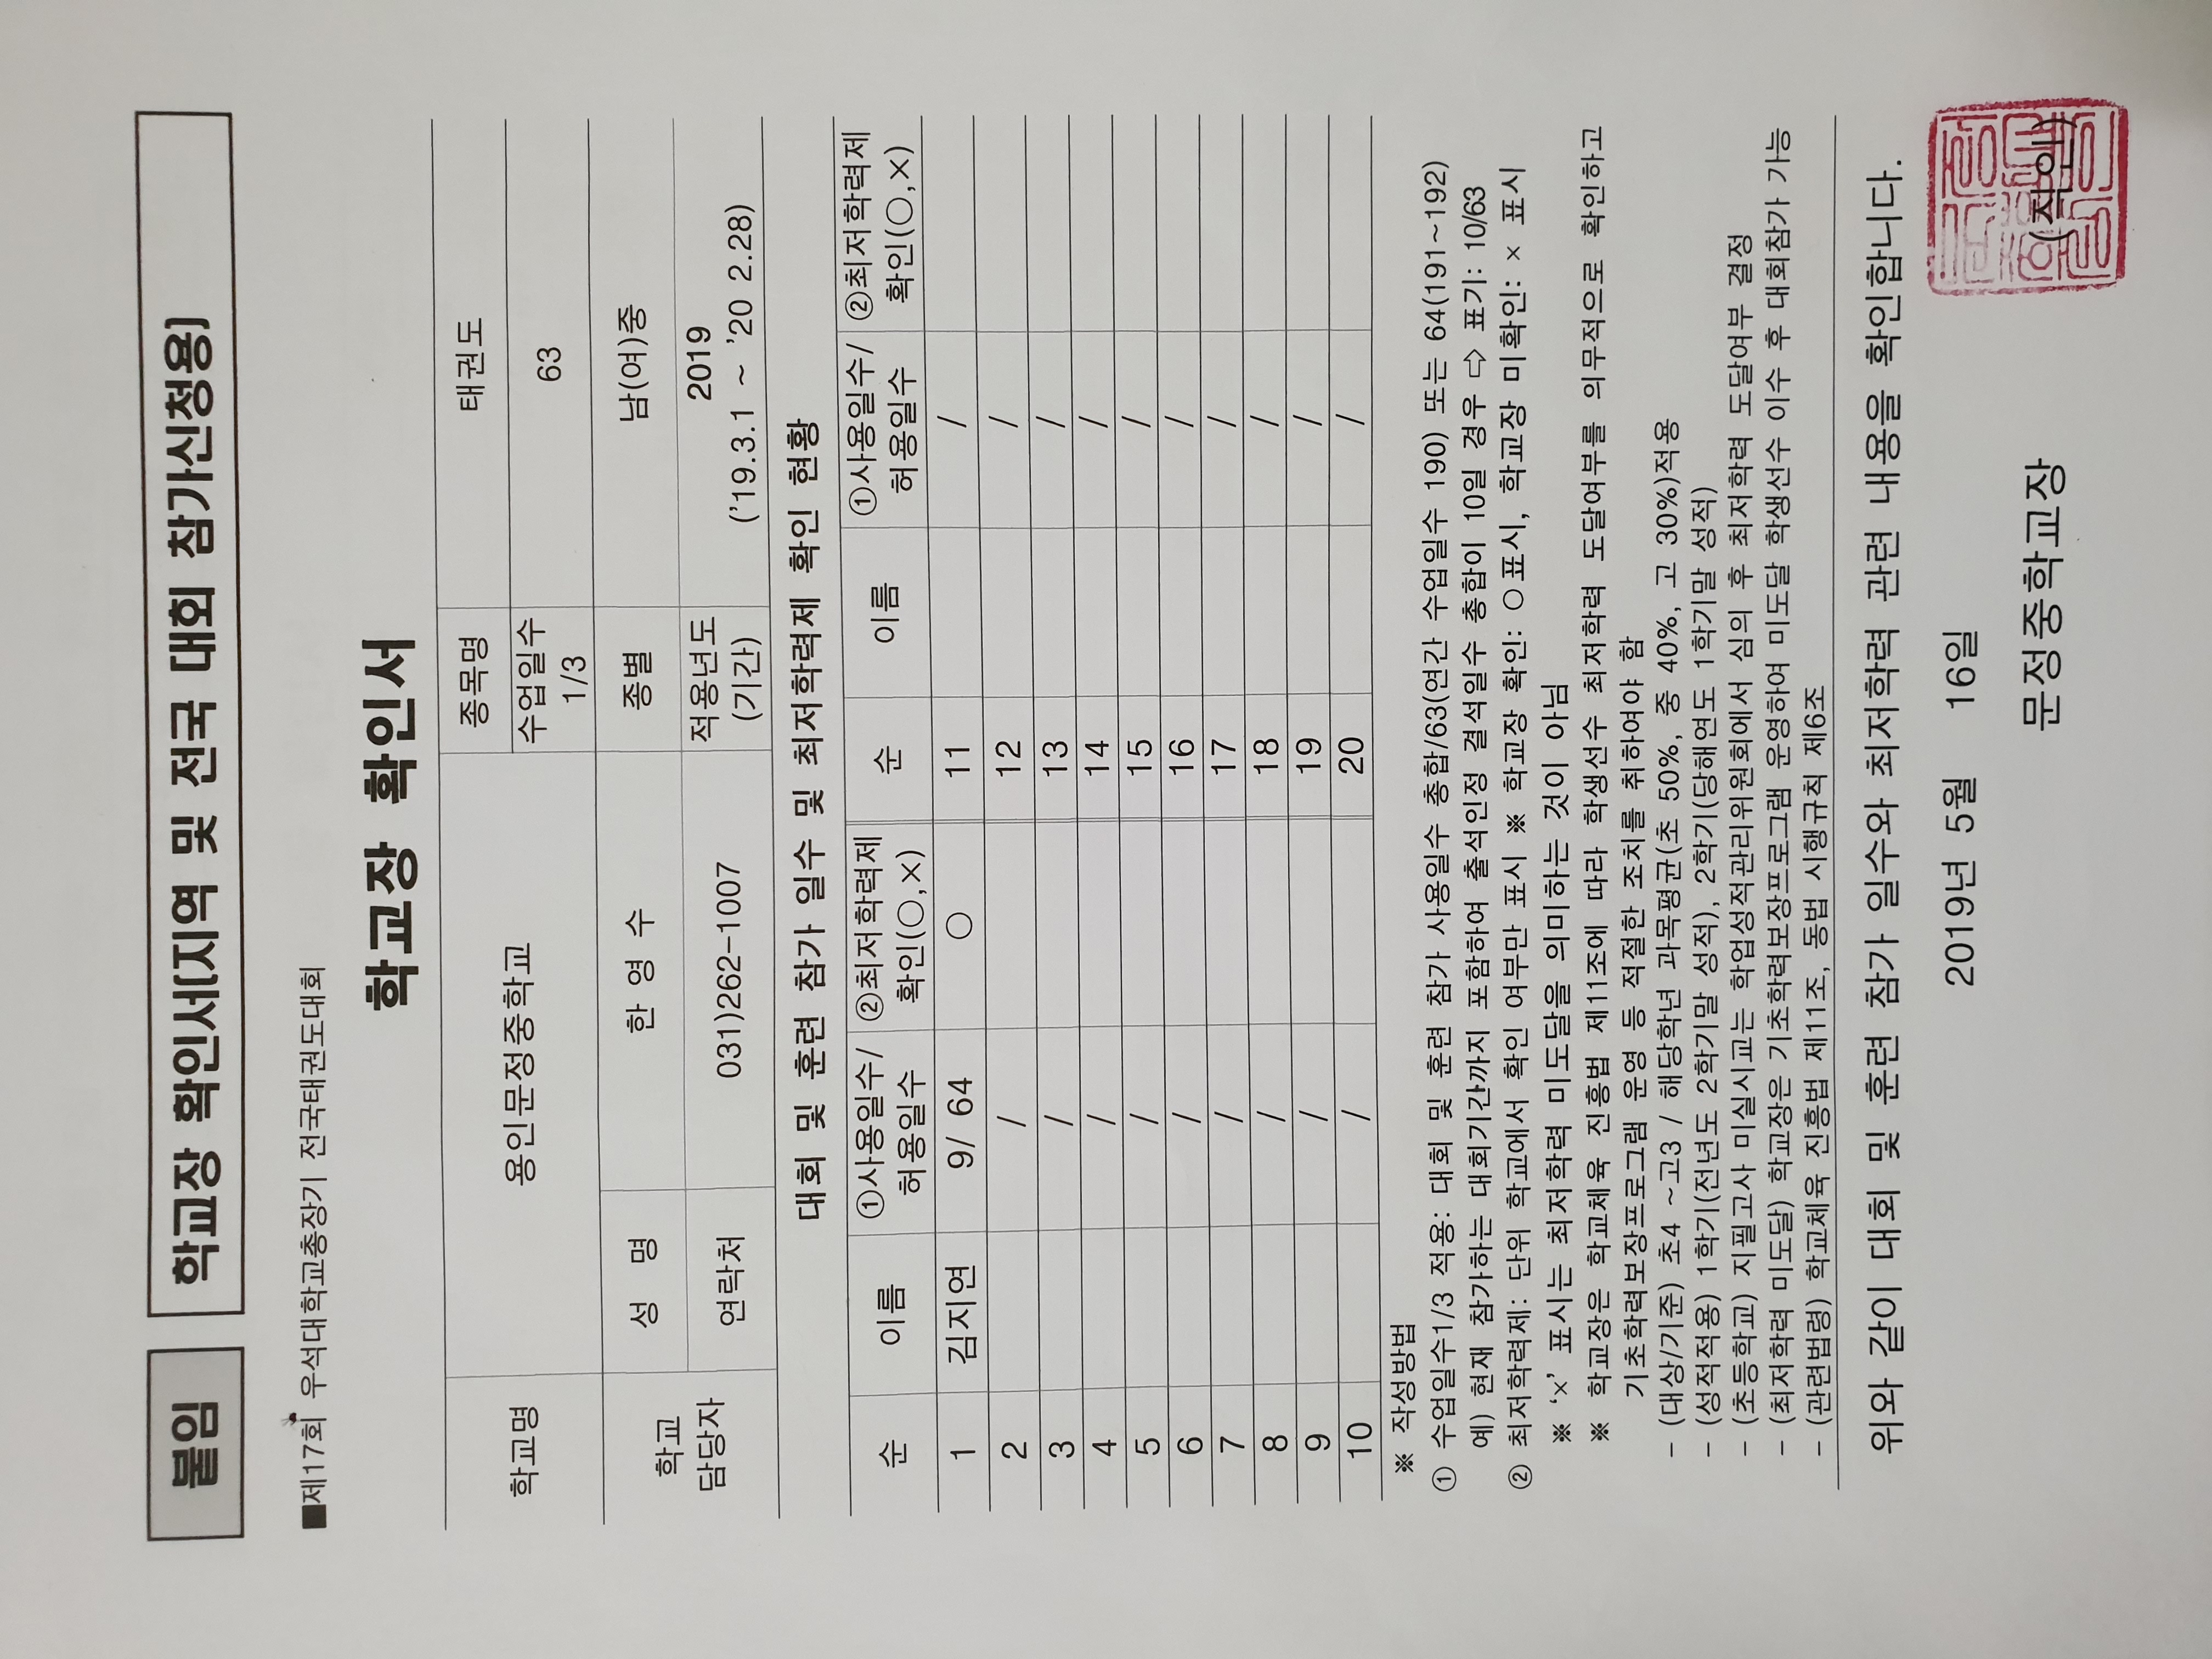 붙임 학교장 확인서(지역 및 전국 대회 참가신청용)
■제17회 우석대학교총장기 전국태권도대회
학교장 확인서
학교명 용인문정중학교 종목명 태권도
수업일수 1/3 63
학교 담당자 성 명 한 영 수 종별 남(여)중
연락처 031)262-1007 적용년도 (기간) 2019 ('19.3.1 ~ '20 2.28)
대회 및 훈련 참가 일수 및 최저학력제 확인 현황
순 이름 ①사용일수/ 허용일수 ②최저학력제 확인(○,×) 순 이름 ①사용일수/ 허용일수 ②최저학력제 확인(○,×)
1 김지연 9/ 64 ○ 11 /
2 / 12 /
3 / 13 /
4 / 14 /
5 / 15 /
6 / 16 /
7 / 17 /
8 / 18 /
9 / 19 /
10 / 20 /
※ 작성방법
① 수업일수1/3 적용: 대회 및 훈련 참가 사용일수 총합/63(연간 수업일수 190) 또는 64(191~192)
예) 현재 참가하는 대회기간까지 포함하여 출석인정 결석일수 총합이 10일 경우 ⇨ 표기: 10/63
② 최저학력제: 단위 학교에서 확인 여부만 표시 ※ 학교장 확인: ○ 표시, 학교장 미확인: × 표시
※ '×' 표시는 최저학력 미도달을 의미하는 것이 아님
※ 학교장은 학교체육 진흥법 제11조에 따라 학생선수 최저학력 도달여부를 의무적으로 확인하고
기초학력보장프로그램 운영 등 적절한 조치를 취하여야 함
- (대상/기준) 초4 ~고3 / 해당학년 과목평균(초 50%, 중 40%, 고 30%)적용
- (성적적용) 1학기(전년도 2학기말 성적), 2학기(당해연도 1학기말 성적)
- (초등학교) 지필고사 미실시교는 학업성적관리위원회에서 심의 후 최저학력 도달여부 결정
- (최저학력 미도달) 학교장은 기초학력보장프로그램 운영하여 미도달 학생선수 이수 후 대회참가 가능
- (관련법령) 학교체육 진흥법 제11조, 동법 시행규칙 제6조
위와 같이 대회 및 훈련 참가 일수와 최저학력 관련 내용을 확인합니다.
2019년 5월 16일
문정중학교장 (직인)